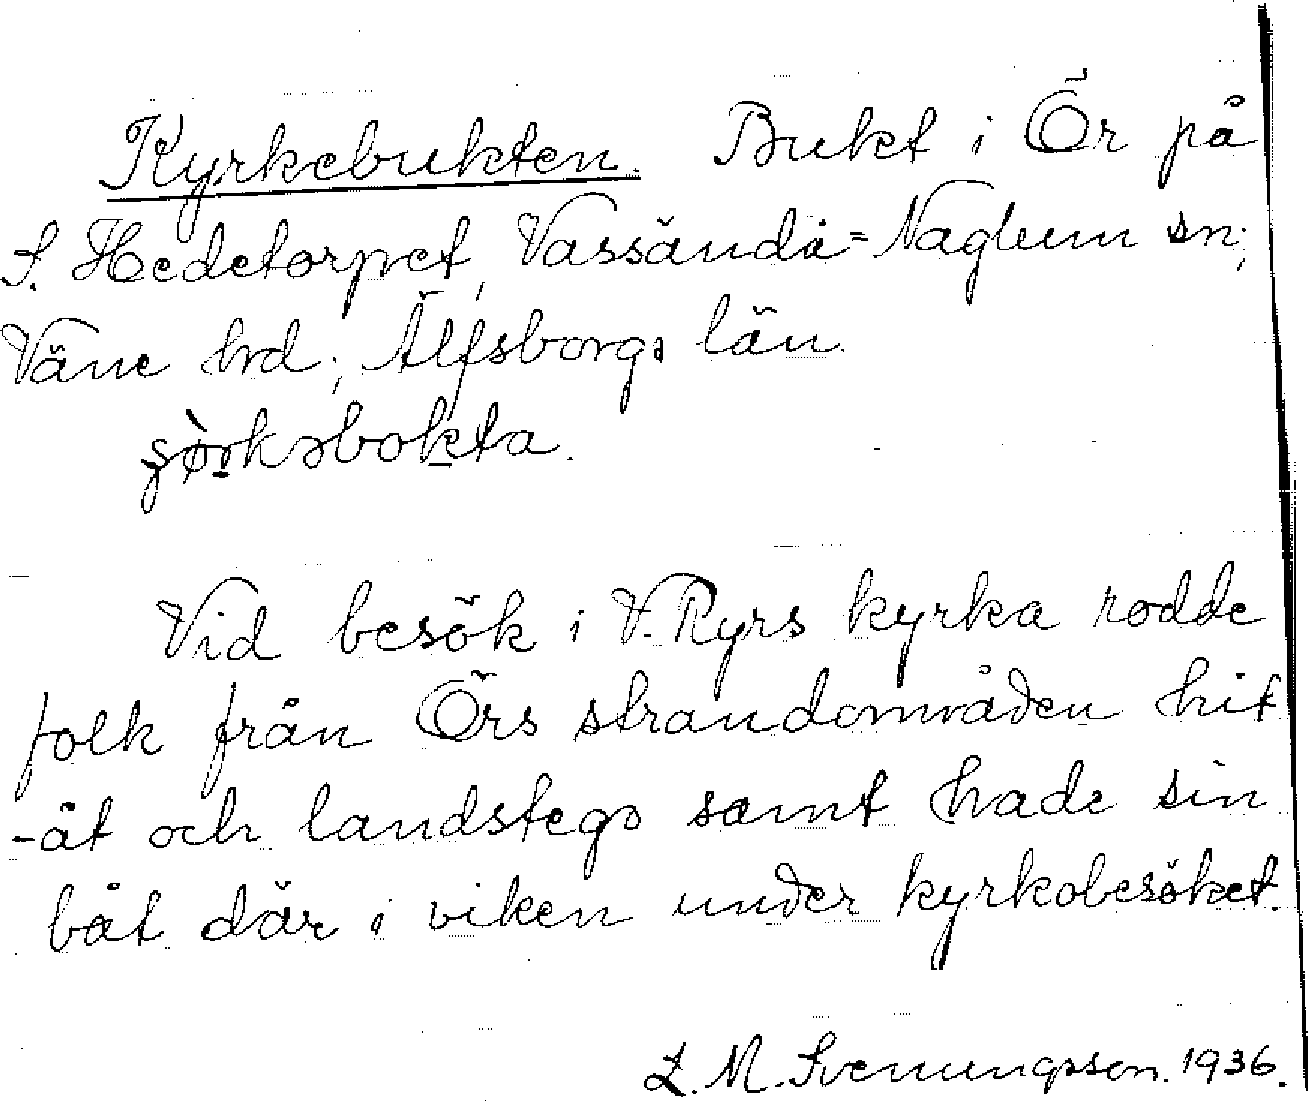 Kyrkebukten. Bukt i Ör på
S. Hedetorpet, Vassända=Naglum sn;
Väne hrd; Älfsborgs län.
Vid besök i V. Ryrs kyrka rodde
folk från Örs strandområden hit
-åt och landstego samt hade sin
båt där i viken under kyrkobesöket.
L. M. Svenungsson. 1936.